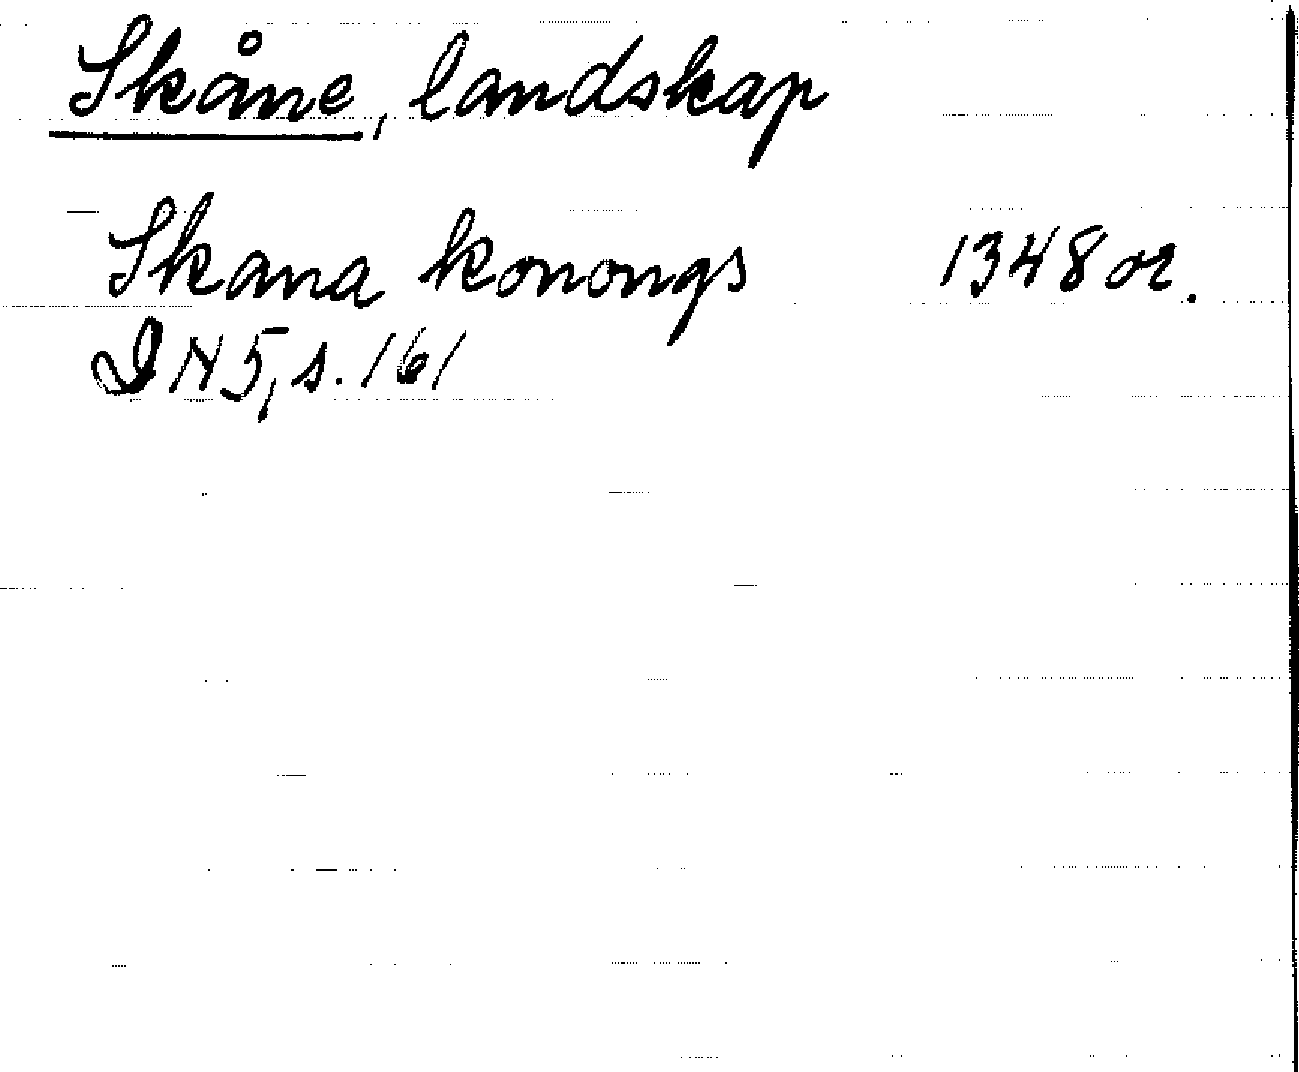 Skåne, landskap
Skana konongs 1348 or.
DN 5, s. 161